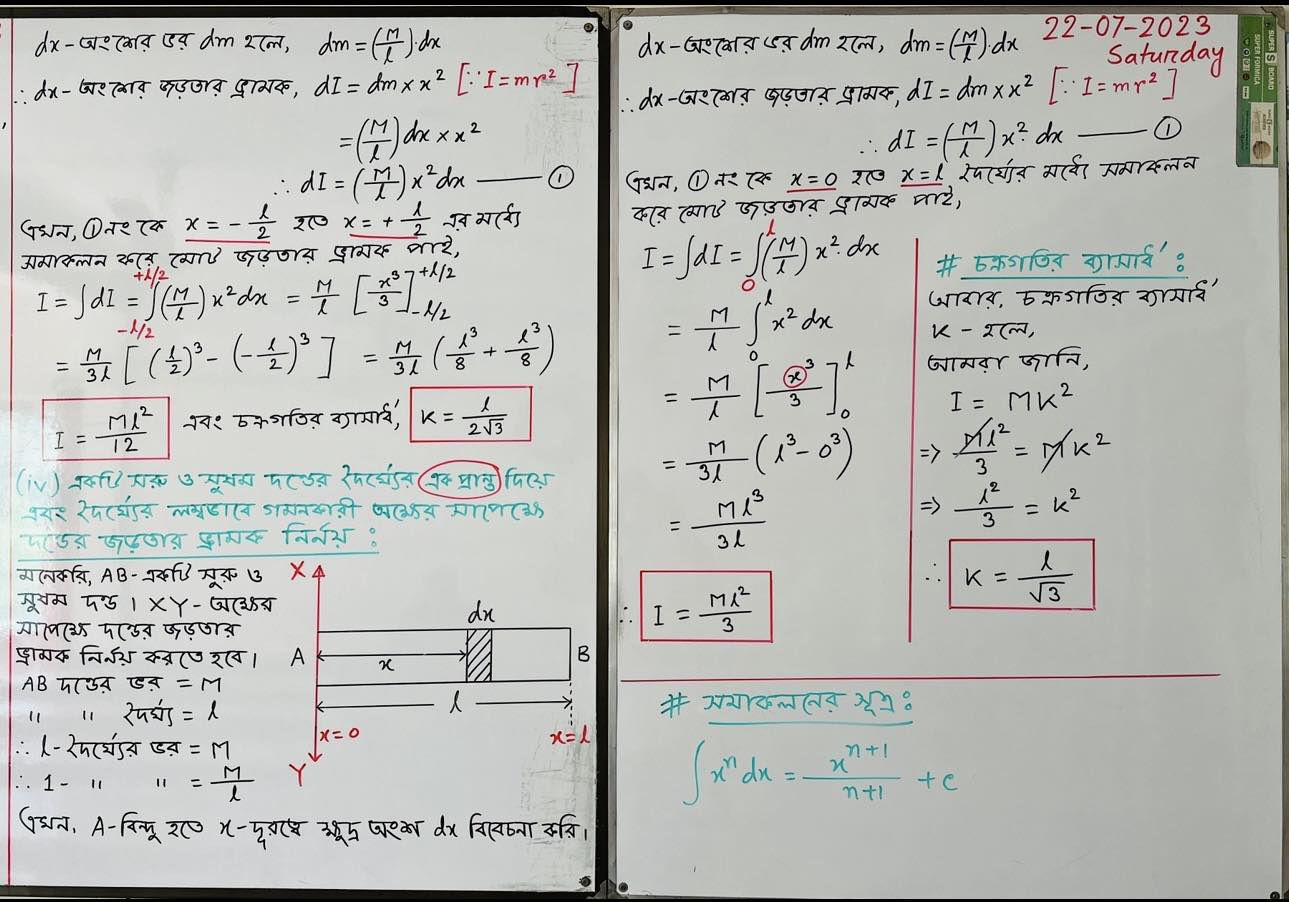 dx-অংশের ভর dm হলে, dm = (M/l)·dx
∴ dx-অংশের জড়তার ভ্রামক, dI = dm × x² [∵ I = mr²]
= (M/l) dx × x²
∴ dI = (M/l) x² dx —— ①
এখন, ① নং কে x = - l/2 হতে x = + l/2 এর মধ্যে
সমাকলন করে মোট জড়তার ভ্রামক পাই,
I = ∫dI = ∫_{-l/2}^{+l/2} (M/l) x² dx = M/l [x³/3]_{-l/2}^{+l/2}
= M/3l [(l/2)³ - (-l/2)³] = M/3l (l³/8 + l³/8)
I = Ml²/12 এবং চক্রগতির ব্যাসার্ধ, K = l/2√3
(iv) একটি সরু ও সুষম দন্ডের দৈর্ঘ্যের এক প্রান্ত দিয়ে
এবং দৈর্ঘ্যের লম্বভাবে গমনকারী অক্ষের সাপেক্ষে
দন্ডের জড়তার ভ্রামক নির্নয় :
মনেকরি, AB-একটি সরু ও
সুষম দন্ড। XY-অক্ষের
সাপেক্ষে দন্ডের জড়তার
ভ্রামক নির্নয় করতে হবে।
AB দন্ডের ভর = M
" " দৈর্ঘ্য = l
∴ l-দৈর্ঘ্যের ভর = M
∴ 1- " " = M/l
X
dx
A
x
B
l
x=0
x=l
Y
এখন, A-বিন্দু হতে x-দূরত্বে ক্ষুদ্র অংশ dx বিবেচনা করি।
22-07-2023
Saturday
dx-অংশের ভর dm হলে, dm = (M/l)·dx
∴ dx-অংশের জড়তার ভ্রামক, dI = dm × x² [∵ I = mr²]
∴ dI = (M/l) x²·dx —— ①
এখন, ① নং কে x=0 হতে x=l দৈর্ঘ্যের মধ্যে সমাকলন
করে মোট জড়তার ভ্রামক পাই,
I = ∫dI = ∫_0^l (M/l) x²·dx
= M/l ∫_0^l x² dx
= M/l [x³/3]_0^l
= M/3l (l³ - 0³)
= Ml³/3l
∴ I = Ml²/3
# চক্রগতির ব্যাসার্ধ :
আবার, চক্রগতির ব্যাসার্ধ
K - হলে,
আমরা জানি,
I = MK²
⇒ Ml²/3 = MK²
⇒ l²/3 = K²
∴ K = l/√3
# সমাকলনের সূত্র :
∫xⁿ dx = x^{n+1}/n+1 + c
SUPER S BOARD
SUPER FORMICA